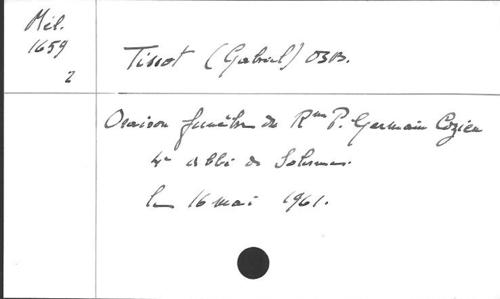 Mél.
1659
2
Tissot (Gabriel) OSB.
Oraison funèbre du Rme P. Germain Cozien
4e abbé de Solesmes.
le 16 mai 1961.